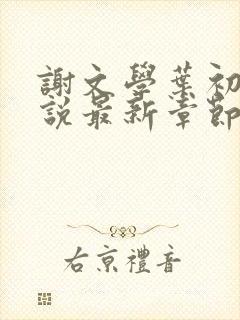 謝文學葉初
説最新章節
右京禮音